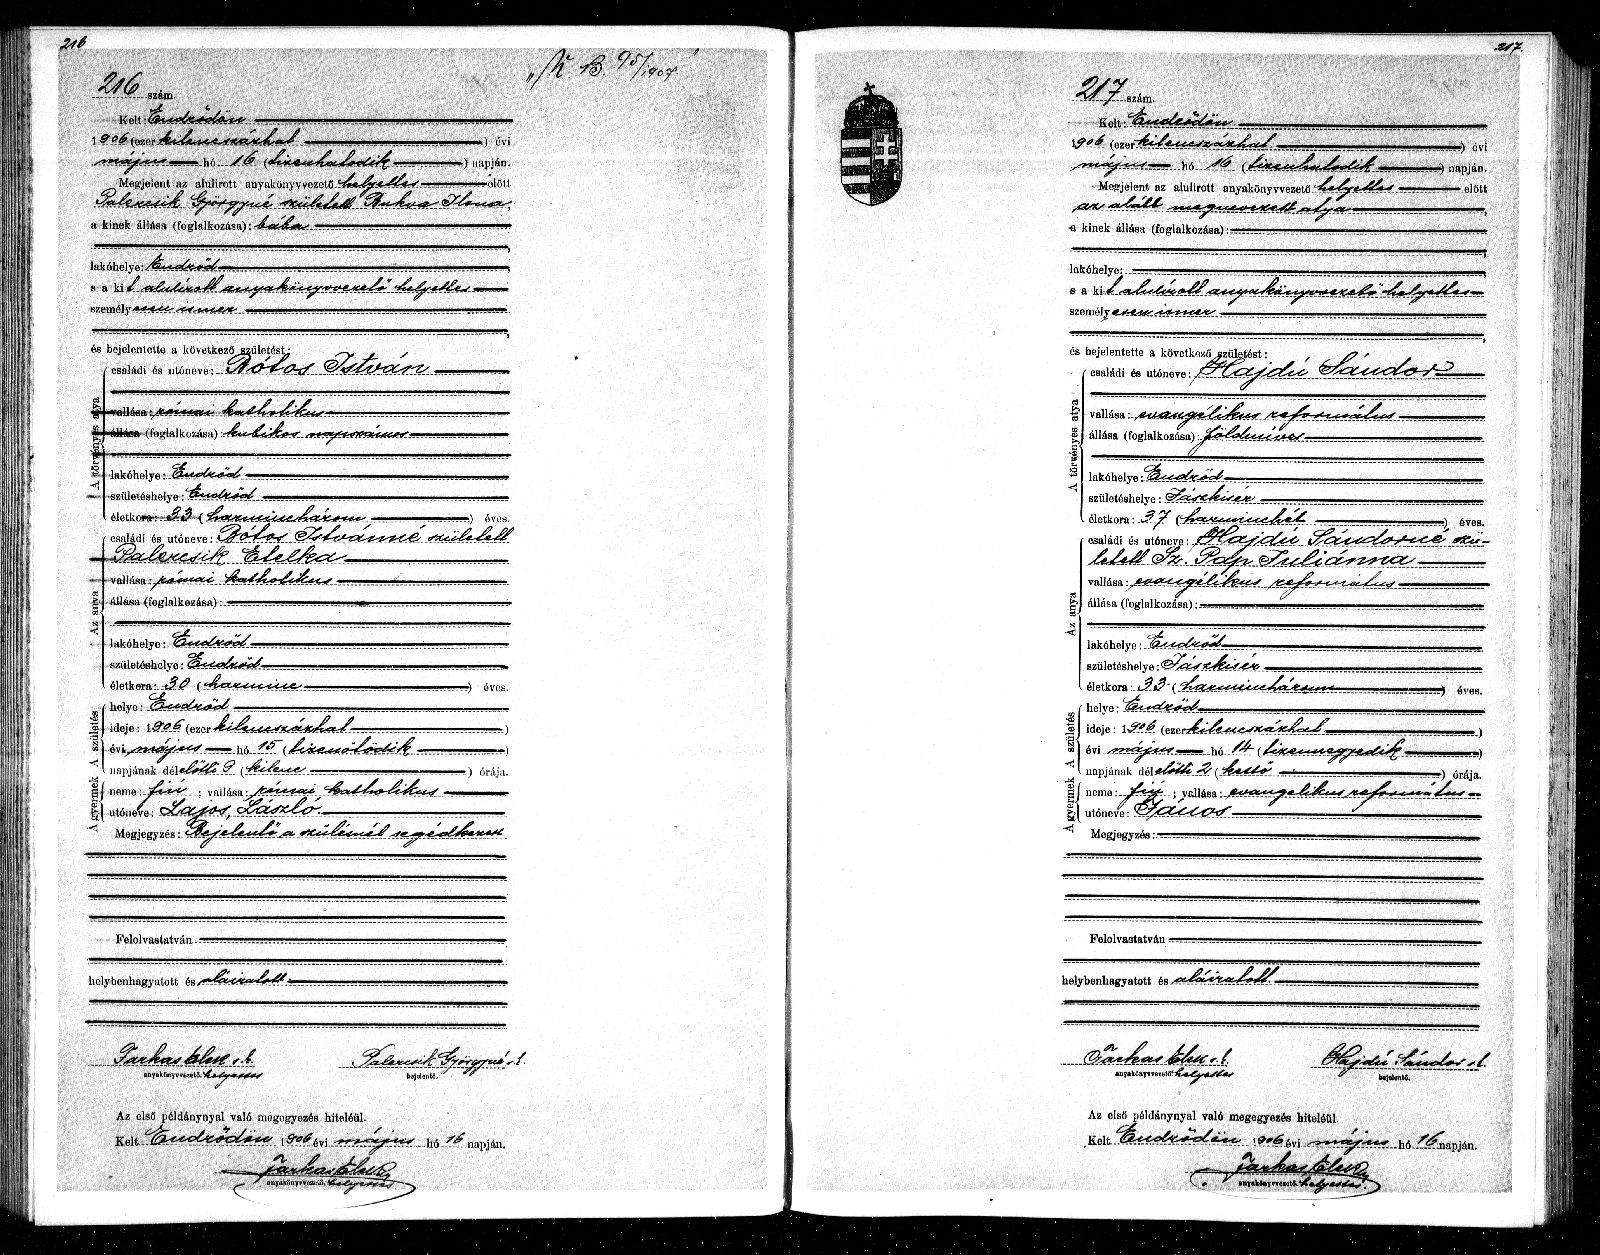 216
216 szám.
Kelt: Endrődön
1906 (ezer kilenczszázhat) évi
május hó 16 (tizenhatodik) napján.
Megjelent az alulirott anyakönyvvezető helyettes előtt
Palercsik Györgyné született Bukva Ilona,
a kinek állása (foglalkozása): bába
lakóhelye: Endrőd
s a kit alulírott anyakönyvvezető helyettes
személyesen ismer
és bejelentette a következő születést:
A törvényes atya
családi és utóneve: Bótos István
vallása: római katholikus
állása (foglalkozása): kubikos napszámos
lakóhelye: Endrőd
születéshelye: Endrőd
életkora: 33 (harminchárom) éves.
Az anya
családi és utóneve: Bótos Istvánné született
Palercsik Etelka
vallása: római katholikus
állása (foglalkozása):
lakóhelye: Endrőd
születéshelye: Endrőd
életkora: 30 (harmincz) éves.
A születés
helye: Endrőd
ideje: 1906 (ezer kilenczszázhat)
évi május hó 15 (tizenötödik)
napjának délelőtti 9 (kilencz) órája.
A gyermek
neme: fiú; vallása: római katholikus
utóneve: Lajos, László
Megjegyzés: Bejelentő a szülésnél segédkezett
Felolvastatván
helybenhagyatott és aláiratott
Farkas Elek s.k. Palercsik Györgyné s.k.
anyakönyvvezető. helyettes bejelentő.
Az első példánynyal való megegyezés hiteléül.
Kelt Endrődön 1906 évi május hó 16 napján.
Farkas Elek
anyakönyvvezető. helyettes
217
217 szám.
Kelt: Endrődön
1906 (ezer kilenczszázhat) évi
május hó 16 (tizenhatodik) napján.
Megjelent az alulirott anyakönyvvezető helyettes előtt
az alább megnevezett atya,
a kinek állása (foglalkozása):
lakóhelye:
s a kit alulírott anyakönyvvezető helyettes
személyesen ismer
és bejelentette a következő születést:
A törvényes atya
családi és utóneve: Hajdú Sándor
vallása: evangélikus református
állása (foglalkozása): földmíves
lakóhelye: Endrőd
születéshelye: Jászkisér
életkora: 37 (harminchét) éves.
Az anya
családi és utóneve: Hajdú Sándorné szü-
letett Sz. Pap Juliánna
vallása: evangélikus református
állása (foglalkozása):
lakóhelye: Endrőd
születéshelye: Jászkisér
életkora: 33 (harminchárom) éves.
A születés
helye: Endrőd
ideje: 1906 (ezer kilenczszázhat)
évi május hó 14 (tizennegyedik)
napjának délelőtti 2 (kettő) órája.
A gyermek
neme: fiú; vallása: evangelikus református
utóneve: János
Megjegyzés:
Felolvastatván
helybenhagyatott és aláiratott.
Farkas Elek s.k. Hajdú Sándor s.k.
anyakönyvvezető. helyettes bejelentő.
Az első példánynyal való megegyezés hiteléül.
Kelt Endrődön 1906 évi május hó 16 napján.
Farkas Elek
anyakönyvvezető. helyettes